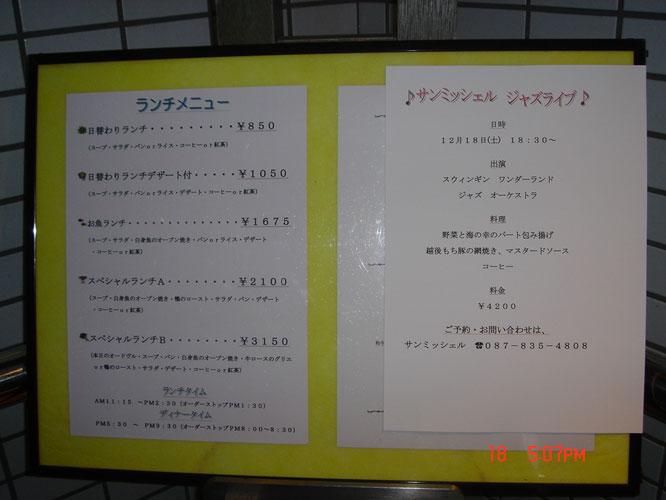 ランチメニュー
日替わりランチ・・・・・・・・・¥850
(スープ・サラダ・パンorライス・コーヒーor紅茶)
日替わりランチデザート付・・・・¥1050
(スープ・サラダ・パンorライス・デザート・コーヒーor紅茶)
お魚ランチ・・・・・・・・・・・・・¥1675
(スープ・サラダ・白身魚のオーブン焼き・パンorライス・デザート
・コーヒーor紅茶)
スペシャルランチA・・・・・・・・¥2100
(スープ・白身魚のオーブン焼き・鴨のロースト・サラダ・パン・デザート
・コーヒーor紅茶)
スペシャルランチB・・・・・・・・¥3150
(本日のオードヴル・スープ・パン・白身魚のオーブン焼き・牛ロースのグリエ
or鴨のロースト・サラダ・デザート・コーヒーor紅茶)
ランチタイム
AM11:15 ~PM2:30 (オーダーストップPM1:30)
ディナータイム
PM5:30 ~ PM9:30 (オーダーストップPM8:00~8:30)
♪サンミッシェル ジャズライブ♪
日時
12月18日(土) 18:30~
出演
スウィンギン ワンダーランド
ジャズ オーケストラ
料理
野菜と海の幸のパート包み揚げ
越後もち豚の網焼き、マスタードソース
コーヒー
料金
¥4200
ご予約・お問い合わせは、
サンミッシェル ☎087-835-4808
18 5:07PM